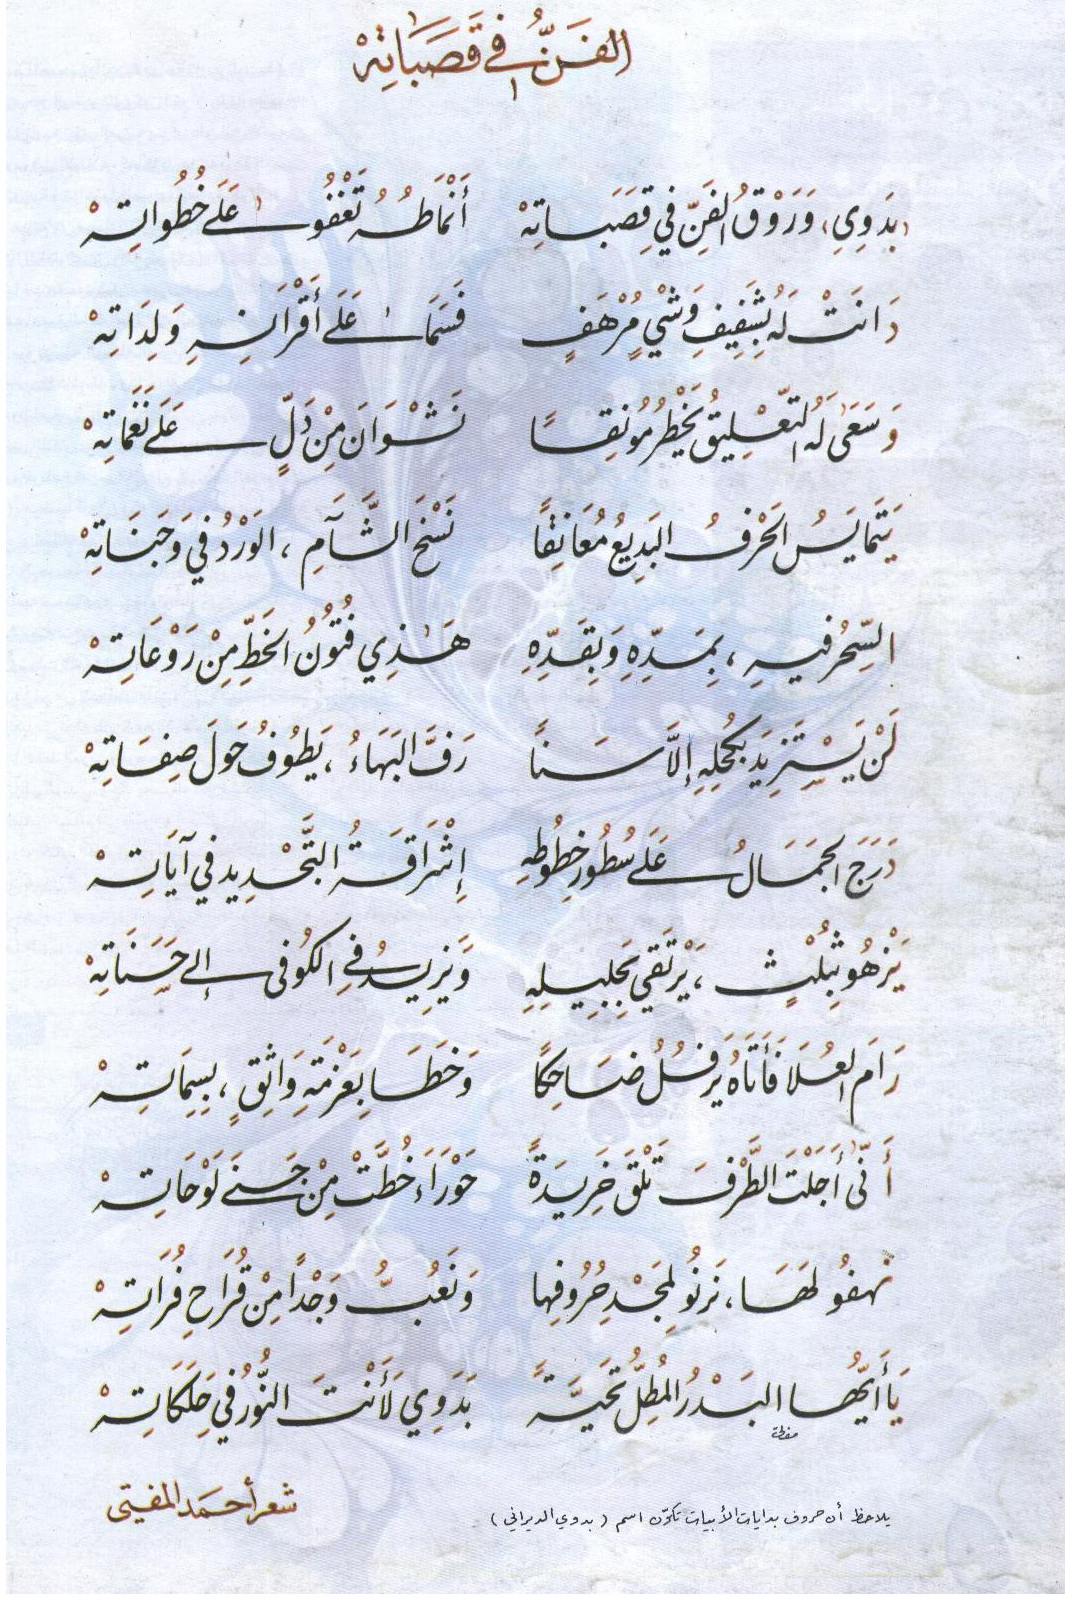 الفَنُّ في قَصَبَاتِهْ
«بَدَوِي» وَرَوْقُ الفَنِّ في قِصَبَاتِهْ أَنْمَاطُهُ تَغْفُو عَلَى خُطُواتِهْ
دَانَتْ لَهُ بِشَفِيفِ وَشْيٍ مُرْهَفٍ فَسَمَا عَلَى أَقْرَانِهِ وَلِدَاتِهْ
وَسَعَى لَهُ التَّعْلِيقُ يَخْطِرُ مُونِقًا نَشْوَانَ مِنْ دَلٍّ عَلَى نَغَمَاتِهْ
يَتَمَايَسُ الحَرْفُ البَدِيعُ مُعَانِقًا نَسْخَ الشَّآمِ ، الوَرْدُ في وَجَنَاتِهْ
السِّحْرُ فِيهِ ، بِمَدِّهِ وَبِقَدِّهِ هَذِي فُتُونُ الخَطِّ مِنْ رَوْعَاتِهْ
لَنْ يَسْتَزِيدَ بِكُحْلِهِ إِلاَّ سَنًا رَفَّ البَهَاءُ ، يَطُوفُ حَولَ صِفَاتِهْ
دَرَجَ الجَمَالُ عَلَى سُطُورِ خطُوطِهِ إِشْرَاقَةُ التَّحْدِيدِ في آيَاتِهْ
يَزْهُو بِثُلْثٍ ، يَرْتَقِي بِجَلِيلِهِ وَيَزِيدُ فِي الكُوفى إلى حَسَنَاتِهْ
رَامَ العُلاَ فَأَتَاهُ يَرْفُلُ ضَاحِكًا وَخَطَا بِعَزْمَةِ وَاثِقٍ ، بِسِمَاتِهْ
أَنَّى أَجَلْتَ الطَّرْفَ تَلْقَ خَرِيدَةً حَوْرَاءَ خُطَّتْ مِنْ جَنَى لَوْحَاتِهْ
نهفُو لَهَا ، نَرنُو لِمَجْدِ حُرُوفِها وَنَعُبُّ وَجْدًا مِنْ قُرَاحِ فُرَاتِهْ
يَا أَيُّهَا البَدْرُ المُطِلُّ تَحَيَّةً بَدَوِي لَأَنْتَ النُّورُ في حَلَكَاتِهْ
شعر أحمد المفتي
يلاحظ أن حروف بدايات الأبيات تكوّن اسم ( بدوي الديراني )